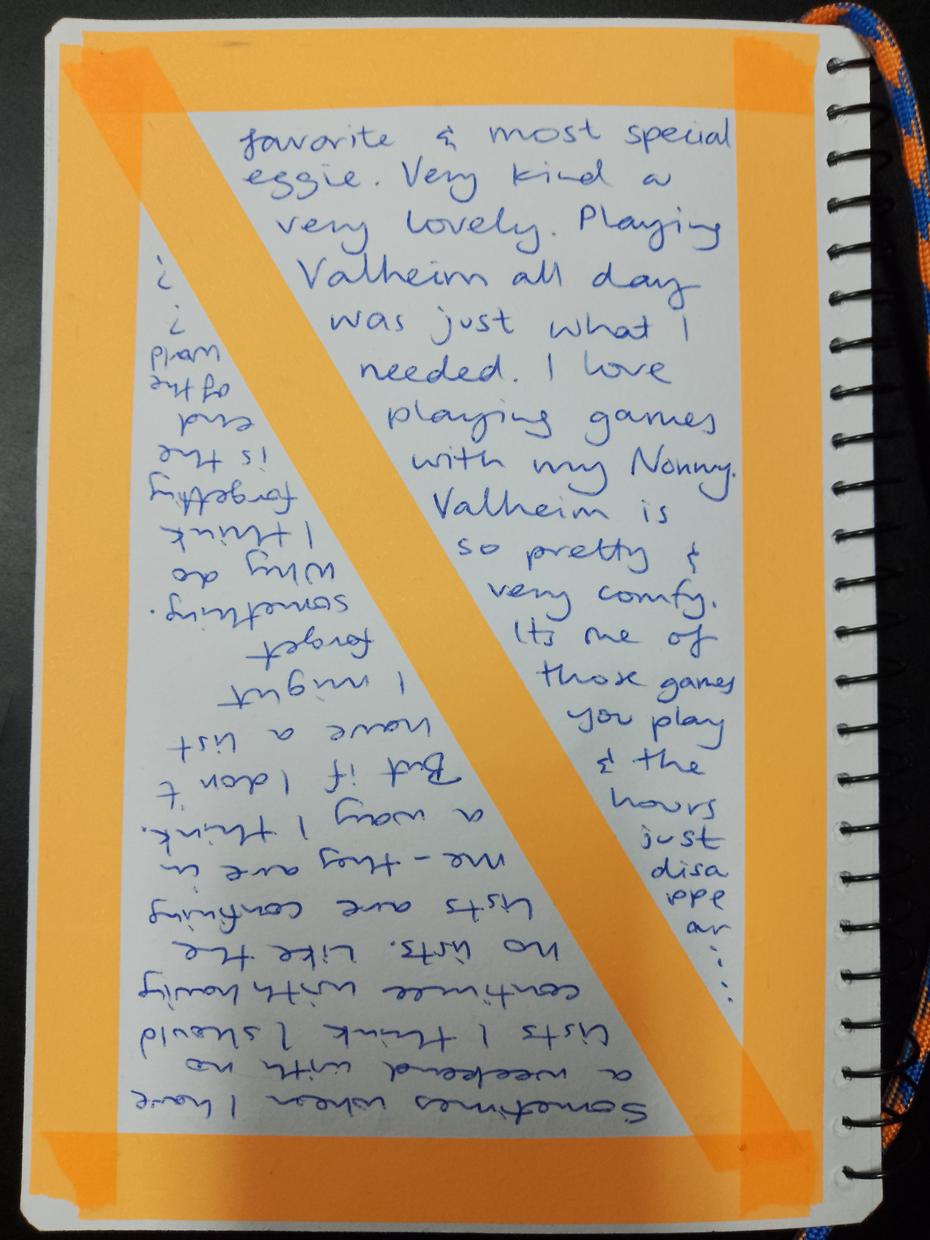 favorite & most special
eggie. Very kind a
very lovely. Playing
Valheim all day
was just what I
needed. I love
playing games
with my Nonny.
Valheim is
so pretty &
very comfy.
Its one of
those games
you play
& the
hours
just
disa
ppe
ar
.
.
.
.
.
Sometimes when I have
a weekend with no
lists I think I should
continue with having
no lists. Like the
lists are confining
me - they are in
a way I think.
But if I don't
have a list
I might
forget
something.
Why do
I think
forgetting
is the
end
of the
world
?
?